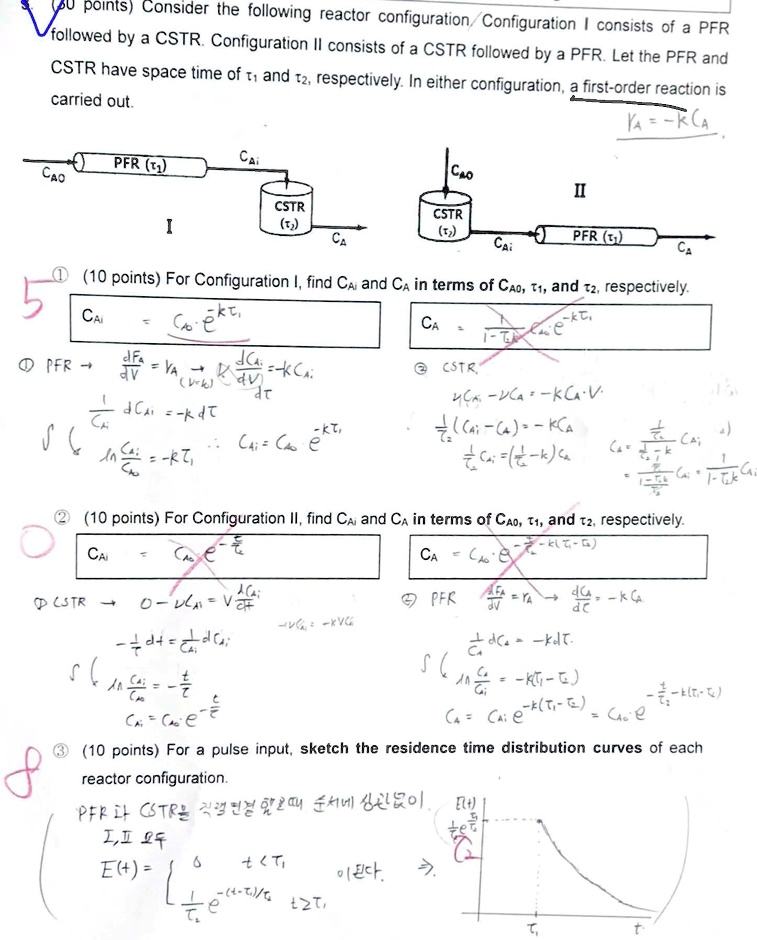 (30 points) Consider the following reactor configuration. Configuration I consists of a PFR
followed by a CSTR. Configuration II consists of a CSTR followed by a PFR. Let the PFR and
CSTR have space time of τ₁ and τ₂, respectively. In either configuration, a first-order reaction is
carried out.
r_A = -kC_A
PFR (τ₁)
C_AO
C_Ai
CSTR
(τ₂)
C_A
I
C_AO
II
CSTR
(τ₂)
C_Ai
PFR (τ₁)
C_A
5
① (10 points) For Configuration I, find C_Ai and C_A in terms of C_AO, τ₁, and τ₂, respectively.
C_Ai = C_A0·e^{-kτ₁}
C_A = 1/(1-τ₂k) C_A0 e^{-kτ₁}
① PFR → dF_A/dV = r_A → dC_Ai/dτ = -kC_Ai
1/C_Ai dC_Ai = -k dτ
∫ ln C_Ai/C_A0 = -kτ₁ ∴ C_Ai = C_A0 e^{-kτ₁}
② CSTR
νC_Ai - νC_A = -kC_A·V
1/τ₂ (C_Ai - C_A) = -kC_A
1/τ₂ C_Ai = (1/τ₂ - k) C_A
C_A = (1/τ₂)/(1/τ₂ - k) C_Ai
= (1/τ₂)/((1-τ₂k)/τ₂) C_Ai = 1/(1-τ₂k) C_Ai
0
② (10 points) For Configuration II, find C_Ai and C_A in terms of C_AO, τ₁, and τ₂, respectively.
C_Ai = C_A0 e^{-t/τ₂}
C_A = C_A0·e^{-t/τ₂-k(τ₁-τ₂)}
① CSTR → 0 - νC_Ai = V dC_Ai/dt
-νC_Ai = -kVC_A
-1/τ dt = 1/C_Ai dC_Ai
∫ ln C_Ai/C_A0 = -t/τ
C_Ai = C_A0·e^{-t/τ}
② PFR dF_A/dV = r_A → dC_A/dτ = -kC_A
1/C_A dC_A = -kdτ.
∫ ln C_A/C_Ai = -k(τ₁-τ₂)
C_A = C_Ai e^{-k(τ₁-τ₂)} = C_A0·e^{-t/τ₂-k(τ₁-τ₂)}
8
③ (10 points) For a pulse input, sketch the residence time distribution curves of each
reactor configuration.
PFR과 CSTR을 직렬연결 할때 순서에 상관없이
I, II 모두
E(t) = { 0 t < τ₁
1/τ₂ e^{-(t-τ₁)/τ₂} t ≥ τ₁
이된다. ⇒
E(t)
τ₂
τ₁
t